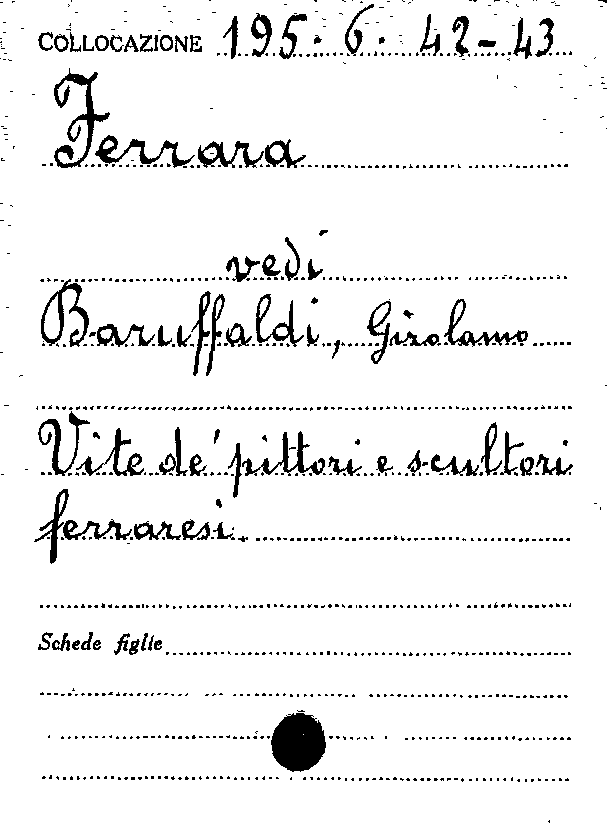 COLLOCAZIONE 195.6.42-43
Ferrara
vedi
Baruffaldi, Girolamo
Vite de' pittori e scultori
ferraresi.
Schede figlie